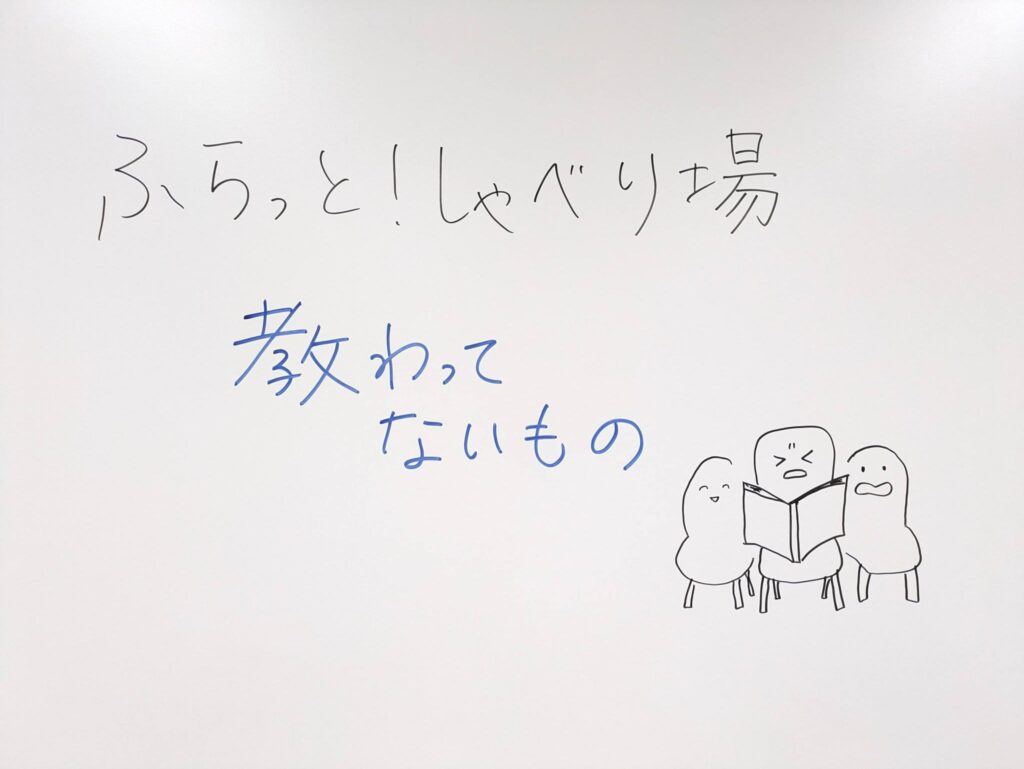 ふらっと！しゃべり場
教わって
ないもの